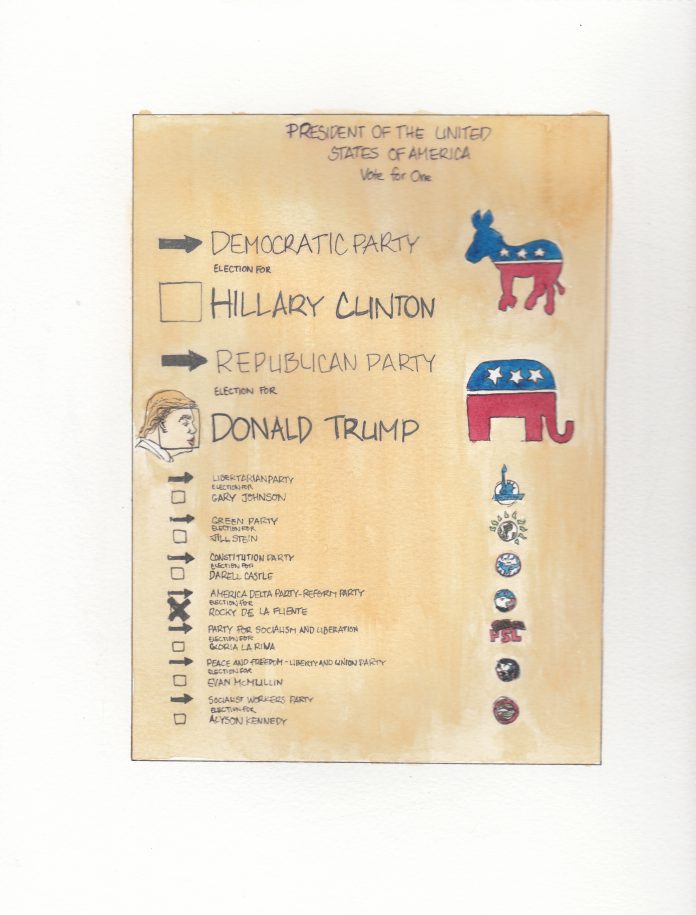 PRESIDENT OF THE UNITED
STATES OF AMERICA
Vote for One
DEMOCRATIC PARTY
ELECTION FOR
HILLARY CLINTON
REPUBLICAN PARTY
ELECTION FOR
DONALD TRUMP
LIBERTARIAN PARTY
ELECTION FOR
GARY JOHNSON
GREEN PARTY
ELECTION FOR
JILL STEIN
CONSTITUTION PARTY
ELECTION FOR
DARELL CASTLE
AMERICA DELTA PARTY-REFORM PARTY
ELECTION FOR
ROCKY DE LA FUENTE
PARTY FOR SOCIALISM AND LIBERATION
ELECTION FOR
GLORIA LA RIVA
PSL
PEACE AND FREEDOM - LIBERTY AND UNION PARTY
ELECTION FOR
EVAN MCMULLIN
SOCIALIST WORKERS PARTY
ELECTION FOR
ALYSON KENNEDY